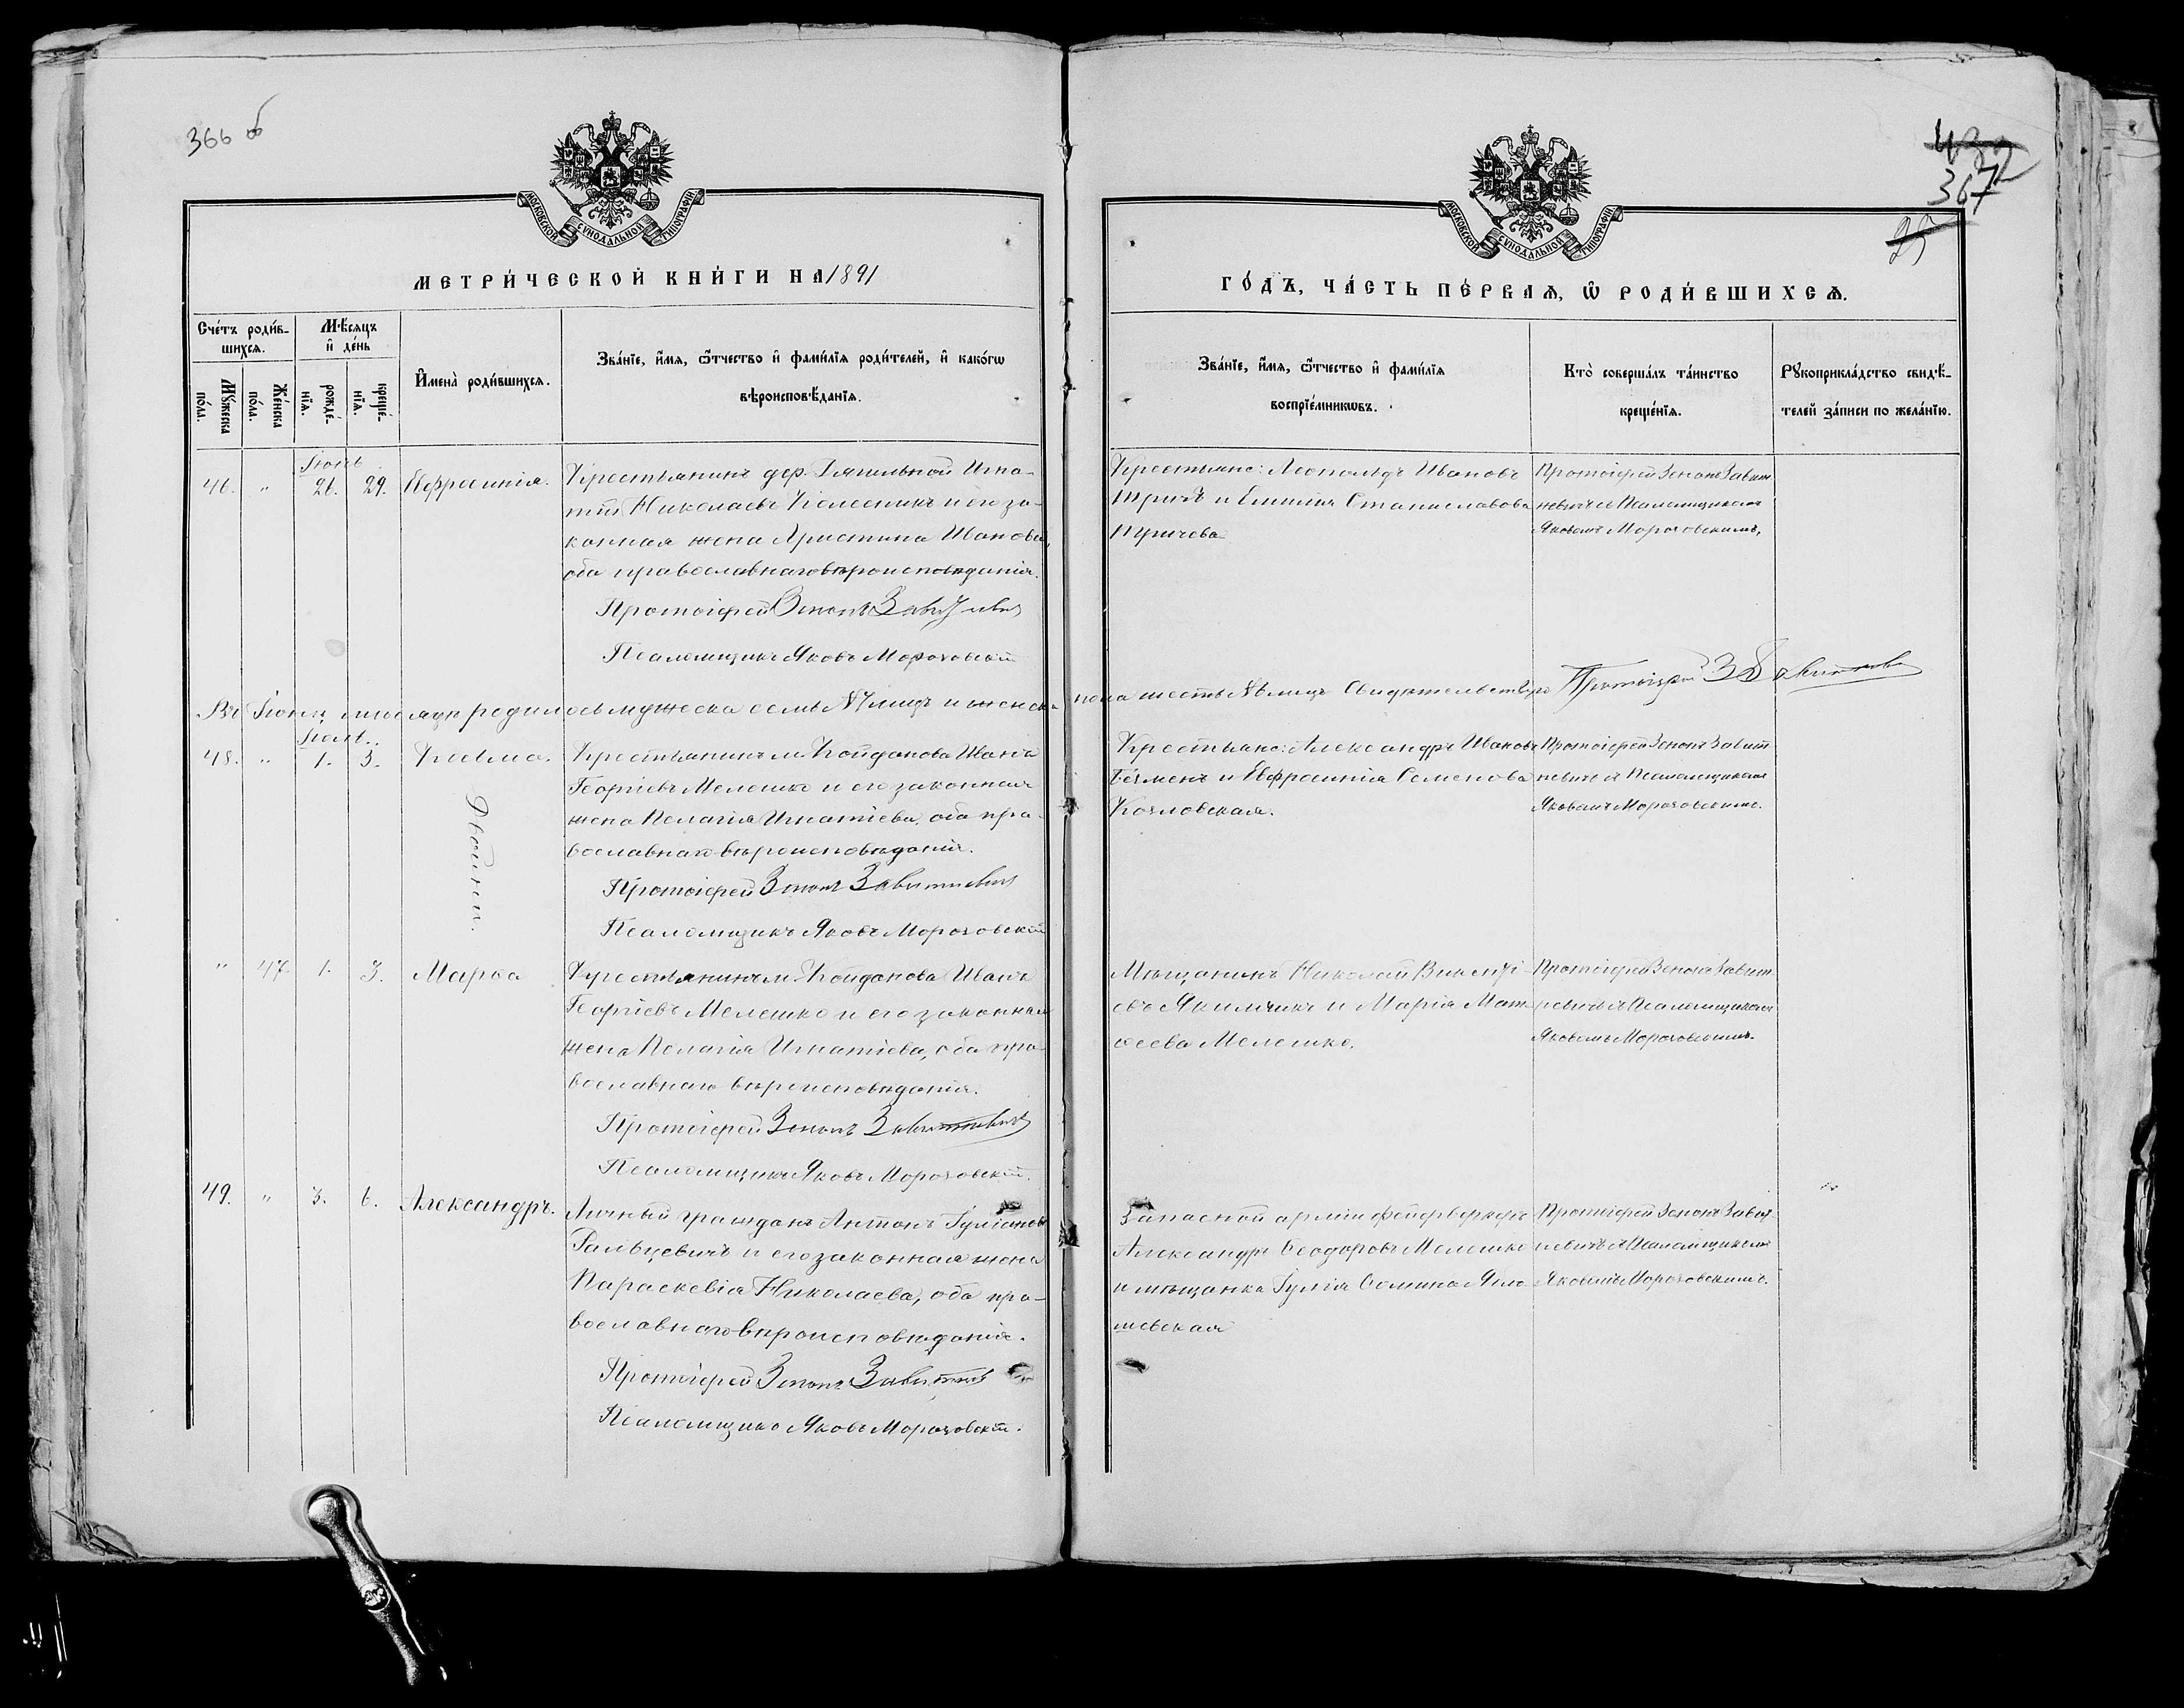 366 об
МОСКОВСКОЙ СѴНОДАЛЬНОЙ ТИПОГРАФІИ
МЕТРИ́ЧЕСКОЙ КНИ́ГИ НА 1891
Сче́тъ роди́в-
шихсѧ.
Мꙋ́жеска
по́ла.
Же́нска
по́ла.
Мѣ́сѧцъ
и҆ де́нь
рожде́-
нїѧ.
креще́-
нїѧ.
И҆мена̀ роди́вшихсѧ.
Зва́нїе, и҆́мѧ, ѻ҆́тчество и҆ фами́лїѧ роди́телей, и҆ како́гѡ
вѣроисповѣ́данїѧ.
Іюнь
46. " 26. 29. Евфросинія.
Крестьянинъ дер. Тяпильной Игна-
тій Николаевъ Колесникъ и его за-
конная жена Христина Иванова,
оба православнаго вѣроисповѣданія.
Протоіерей Зенонъ Завитневичъ
Псаломщикъ Яковъ Мороховскій
Въ Іюнѣ мѣсяцѣ родилось мужеска семь № лицъ и женска
Іюль.
48. " 1. 3. Косьма.
Двойни.
Крестьянинъ м. Койданова Иванъ
Георгіевъ Мелешко и его законная
жена Пелагія Игнатіева, оба пра-
вославнаго вѣроисповѣданія.
Протоіерей Зенонъ Завитневичъ
Псаломщикъ Яковъ Мороховскій
" 47. 1. 3. Марѳа
Крестьянинъ м. Койданова Иванъ
Георгіевъ Мелешко и его законная
жена Пелагія Игнатіева, оба пра-
вославнаго вѣроисповѣданія.
Протоіерей Зенонъ Завитневичъ
Псаломщикъ Яковъ Мороховскій.
49. " 3. 6. Александръ.
Личный гражданъ Антонъ Іуліановъ
Гальцевичъ и его законная жена
Параскевія Николаева, оба пра-
вославнаго вѣроисповѣданія.
Протоіерей Зенонъ Завитневичъ
Псаломщикъ Яковъ Мороховскій.
367
25
МОСКОВСКОЙ СѴНОДАЛЬНОЙ ТИПОГРАФІИ
ГО́ДЪ, ЧА́СТЬ ПЕ́РВАѦ, Ѡ҆ РОДИ́ВШИХСѦ.
Зва́нїе, и҆́мѧ, ѻ҆́тчество и҆ фами́лїѧ
воспрїе́мникѡвъ.
Кто̀ соверша́лъ та́инство
креще́нїѧ.
Рꙋкоприкла́дство свидѣ́-
телей за́писи по жела́нїю.
Крестьяне: Леопольдъ Ивановъ
и Емилія Станиславова
Протоіерей Зенонъ Завит-
невичъ съ Псаломщикомъ
Яковомъ Мороховскимъ.
пола шесть № лицъ Свидѣтельствую Протоіерей З. Завитневичъ
Крестьяне: Александръ Ивановъ
и Евфросинія Семенова
Козловская.
Протоіерей Зенонъ Завит-
невичъ съ Псаломщикомъ
Яковомъ Мороховскимъ.
Мѣщанинъ Николай Викенті-
евъ Якимчикъ и Марія Мат-
ѳеева Мелешко.
Протоіерей Зенонъ Завит-
невичъ съ Псаломщикомъ
Яковомъ Мороховскимъ.
Запасной арміи фейерверкеръ
Александръ Ѳеодоровъ Мелешко
и мѣщанка Іулія Ѳомина
Протоіерей Зенонъ Завит-
невичъ съ Псаломщикомъ
Яковомъ Мороховскимъ.